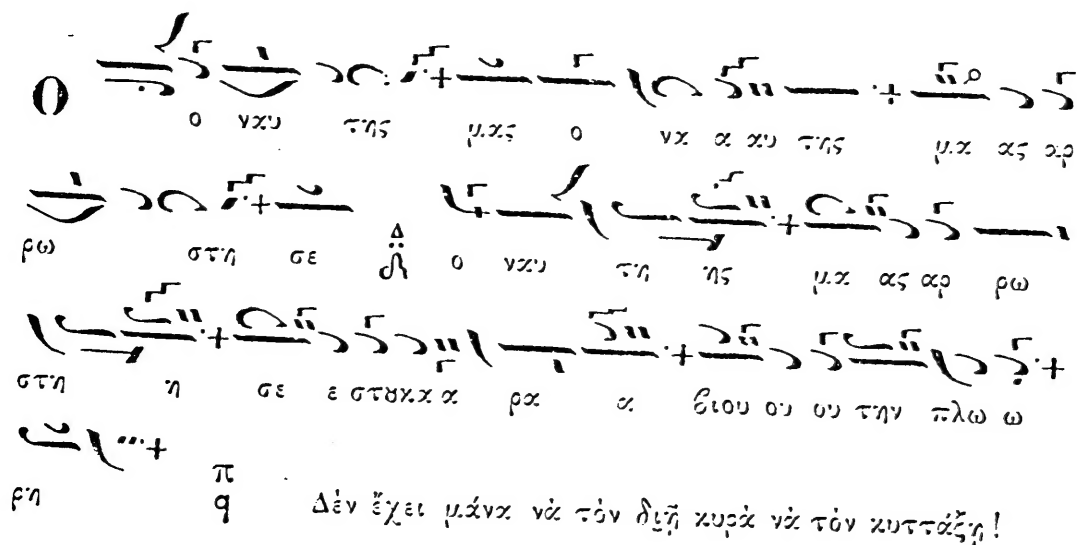 Ο ο ναυ της μας ο να α αυ της μα ας αρ
ρω στη σε Δ ο ναυ τη ης μα ας αρ ρω
στη η σε ε στȣκα α ρα α βιου ου ου την πλω ω
ρη π q Δέν ἔχει μάνα νὰ τόν διῇ κυρὰ νὰ τόν κυττάξῃ!